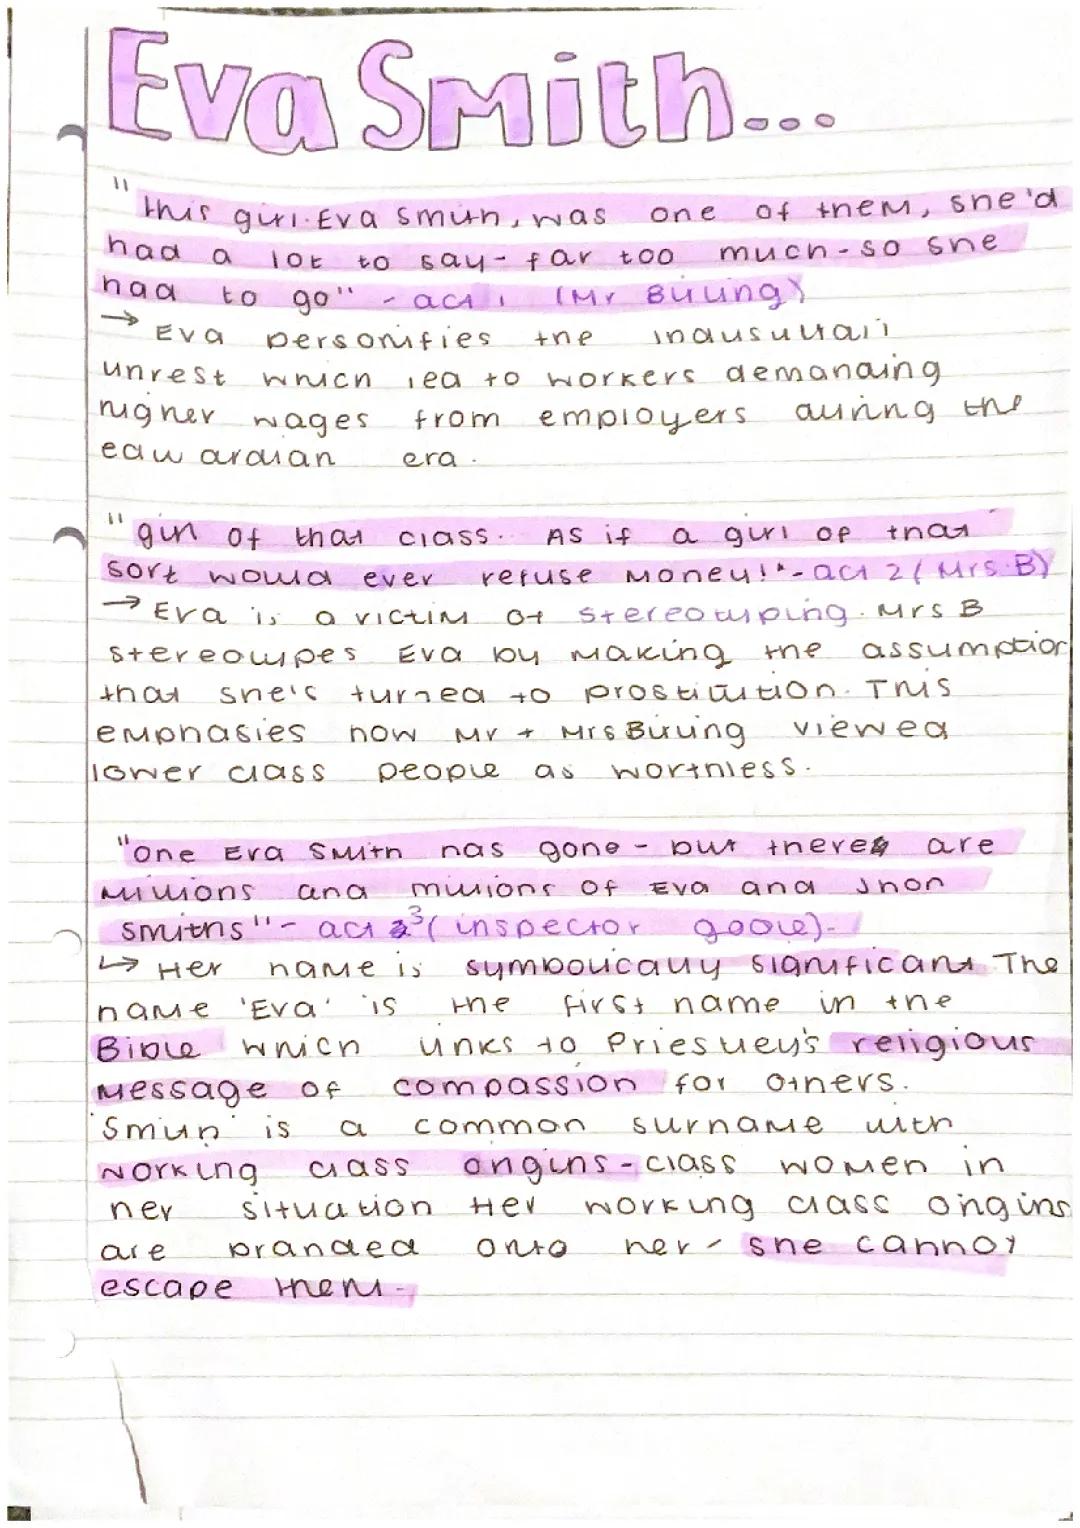 Eva Smith...
"this girl. Eva Smith, was one of them, she'd
had a lot to say - far too much - so she
had to go" - act 1 (Mr Birling)
→ Eva personifies the industrial
unrest which led to workers demanding
higher wages from employers during the
edwardian era.
"girl of that class.. As if a girl of that
sort would ever refuse money!" - act 2 (Mrs B)
→ Eva is a victim of stereotyping. Mrs B
stereotypes Eva by making the assumption
that she's turned to prostitution. This
emphasies how Mr + Mrs Birling viewed
lower class people as worthless.
"one Eva Smith has gone - but there are
millions and millions of Eva and Jhon
Smiths" - act 3 (inspector goole).
↳ Her name is symbolically significant The
name 'Eva' is the first name in the
Bible which links to Priestley's religious
message of compassion for others.
'Smith' is a common surname with
working class origins - class women in
her situation Her working class origins
are branded onto her - she cannot
escape them.